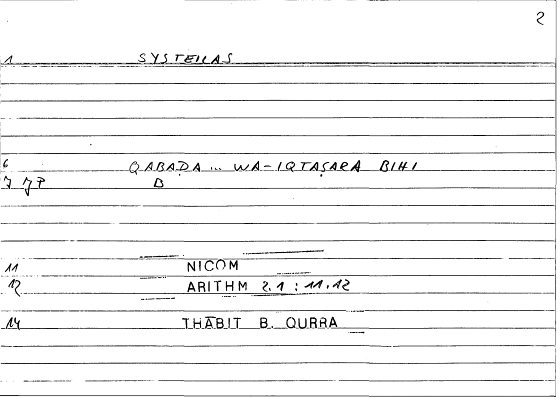 2
1 SYSTEILAS
6 QABAḌA ... WA-IQTAṢARA BIHI
7 7P B
11 NICOM
12 ARITHM 2.1 : 11.12
14 THĀBIT B. QURRA